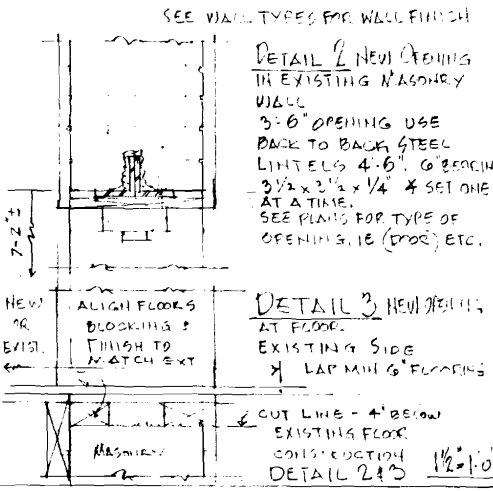 SEE WALL TYPES FOR WALL FINISH
DETAIL 2 NEW OPENING
IN EXISTING MASONRY
WALL
3'-6" OPENING USE
BACK TO BACK STEEL
LINTELS 4'-6". 6" BEARIN
3 1/2 x 3 1/2 x 1/4" & SET ONE
AT A TIME.
SEE PLANS FOR TYPE OF
OPENING, IE (DOOR) ETC.
7'-2"±
NEW
OR
EXIST.
ALIGN FLOORS
BLOCKING &
FINISH TO
MATCH EXT
DETAIL 3 NEW OPENING
AT FLOOR
EXISTING SIDE
LAP MIN 6" FLOORING
CUT LINE - 4" BELOW
EXISTING FLOOR
CONSTRUCTION
MASONRY
DETAIL 2&3 1 1/2"=1'-0